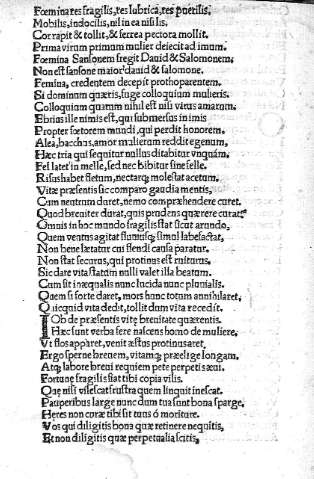 Fœmina res fragilis, res lubrica, res puerilis,
Mobilis, indocilis, nil in ea nisi lis,
Corrapit & tollit, & ferrea pectora mollit.
Prima virum primum mulier deiecit ad imum.
Fœmina Sansonem fregit Dauid & Salomonem,
Non est sansone maior dauid & salomone.
Femina, credentem decepit prothoparentem.
Si dominum quæris, fuge colloquium mulieris.
Colloquium quarum nihil est nisi virus amarum.
Ebrius ille nimis est, qui submersus in imis
Propter fœtorem mundi, qui perdit honorem,
Alea, bacchus, amor mulierum reddit egenum,
Hæc tria qui sequitur nullus ditabitur vnquám,
Fel latet in melle, sed nec bibitur sine felle.
Risus habet fletum, nectarq; molestat acetum.
Vitæ præsentis sic comparo gaudia mentis,
Cum neutrum duret, nemo compræhendere curet.
Quod breuiter durat, quis prudens quærere curat?
Omnis in hoc mundo fragilis stat sicut arundo,
Quem ventus agitat fluuiusq; simul labefactat,
Non bene lætatur cui flendi causa paratur.
Non stat securus, qui protinus est ruiturus,
Sic dare vita statum nulli valet illa beatum.
Cum sit inæqualis nunc lucida nunc pluuialis.
Quem si forte daret, mors hunc totum annihilaret,
Quicquid vita dedit, tollit dum vita recedit.
IOb de præsentis vitę breuitate quærentis.
Hæc sunt verba fere nascens homo de muliere,
Vt flos apparet, venit æstus protinus aret.
Ergo sperne breuem, vitamq; præelige longam.
Atq; labore breui requiem pete perpeti sæui.
Fortunę fragilis fiat tibi copia vilis.
Quę nisi vilescat frustra quem linquit inescat.
Pauperibus large nunc dum tua sunt bona sparge,
Heres non curæ tibi sit tuus ó moriture.
Vos qui diligitis bona quæ retinere nequitis,
Et non diligitis quæ perpetualia scitis,